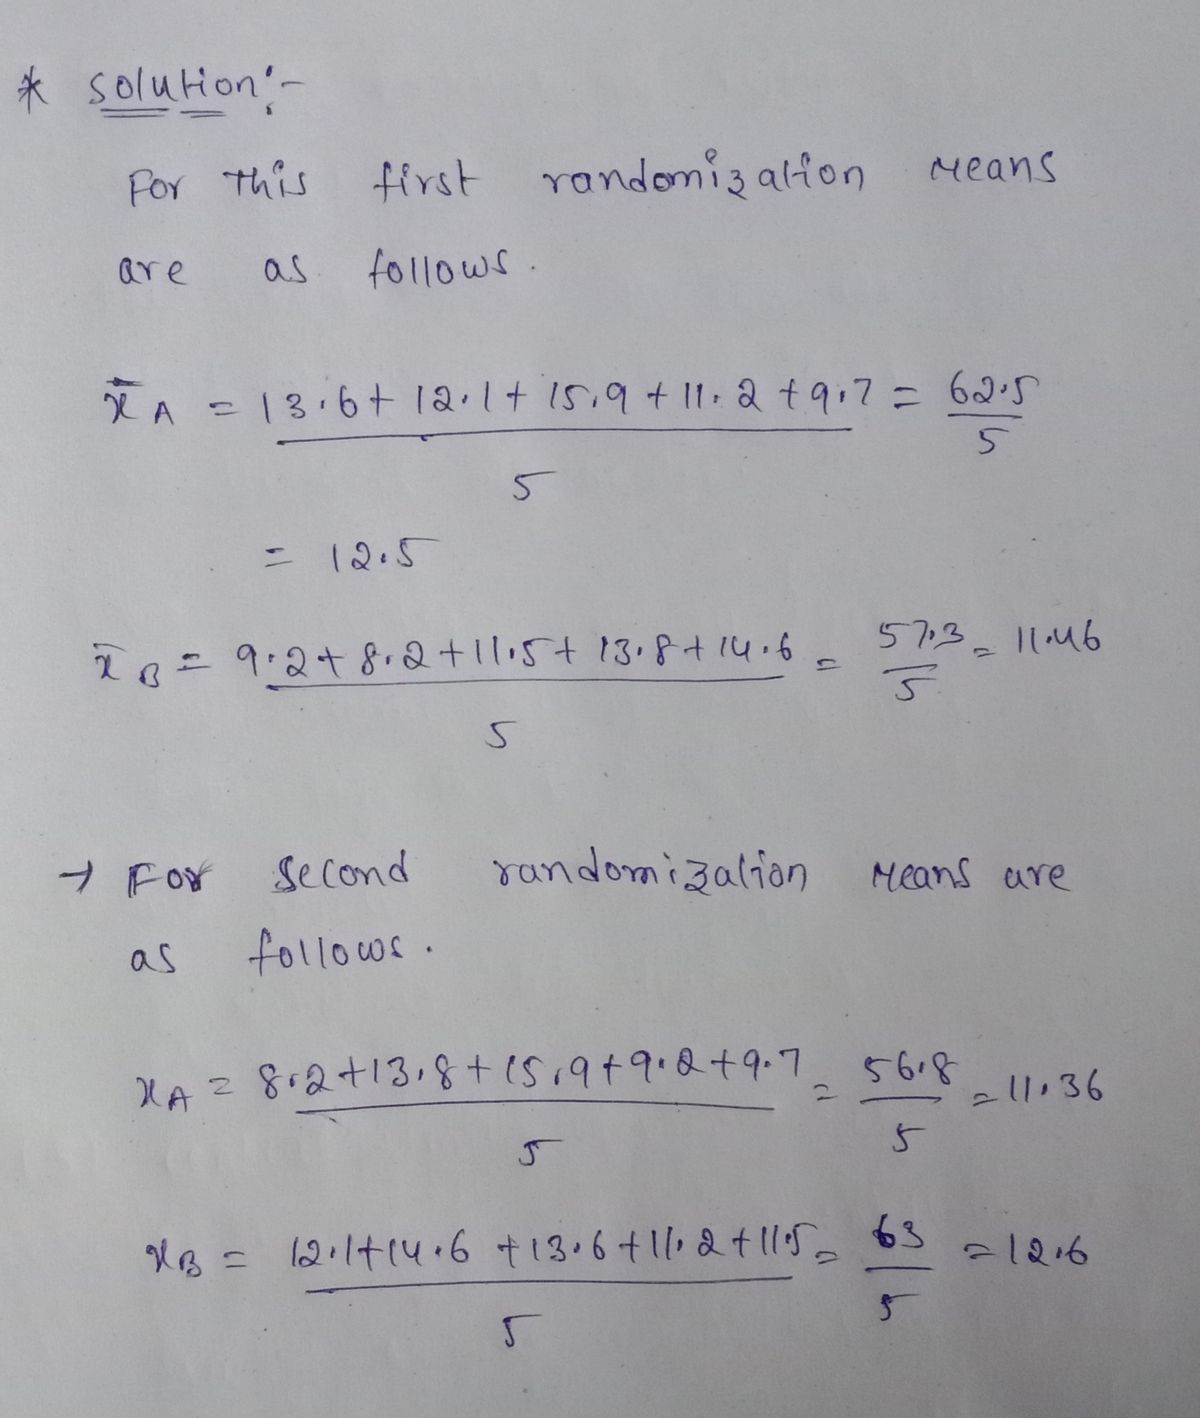 * Solution:-
For This first randomization Means
are as follows.
x̄A = 13.6+12.1+15.9+11.2+9.7 = 62.5
5 5
= 12.5
x̄B = 9.2+8.2+11.5+13.8+14.6 = 57.3 = 11.46
5 5
→ For Second randomization Means are
as follows.
xA = 8.2+13.8+15.9+9.2+9.7 = 56.8 = 11.36
5 5
xB = 12.1+14.6+13.6+11.2+11.5 = 63 = 12.6
5 5